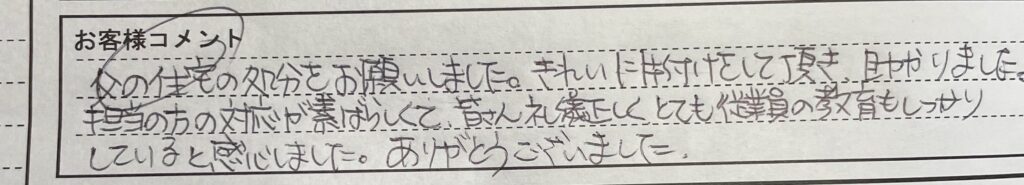 お客様コメント
父の住宅の処分をお願いしました。きれいに片付けをして頂き、助かりました。
担当の方の対応が素ばらしくて、皆さん礼儀正しく とても従業員の教育もしっかり
していると感心しました。ありがとうございました.